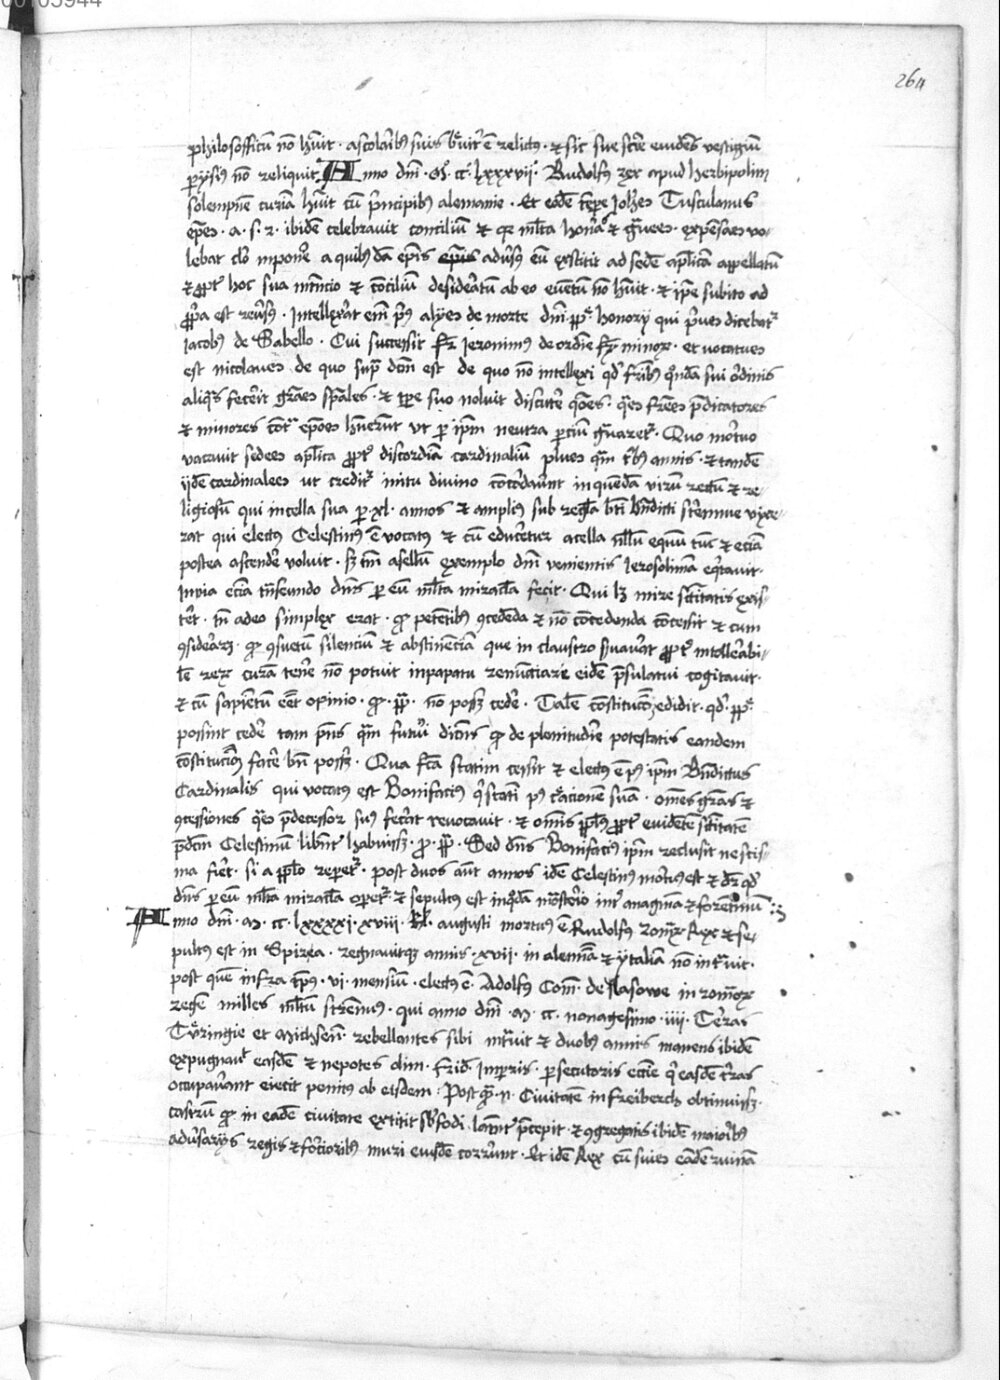 00105944
264
philosofficum no huit · a scolaribus suis breuit e relictus · et sic sue scie euides vestigium
parisius no reliquit Anno dni · M · cc · lxxxvii · Rudolfus rex apud herbipolim
solempne curiam huit cu principibus alemanie · Et eode tpe Johes Tusculanus
epus · a · s · r · ibide celebrauit concilium et qr mlta honera et graues expensas vo-
lebat clo inponere a quibusda epis adusus eu exstitit ad sede aplica appellatu
et ppt hoc sua intencio et concilium desideratum ab eo euentu no huit · et ipe subito ad
ppria est reusus · Intellexerat eni prius alpes de morte dni pp honorii qui prius dicebatr
Jacobus de Sabello · Cui successit fr Jeronimus de ordie frm minor · et vocatus
est nicolaus de quo supra dcm est de quo no intellexi qd fribus quonda sui ordinis
aliquas fecerit gras spales · et tpe suo noluit discutere qones · quas fres predicatores
et minores contra epos huerunt ut per ipm neutra parcium grauaretr · Quo mortuo
vacauit sedes aplica ppt discordia cardinalium plus quam tribus annis · et tande
iide cardinales ut creditr nutu diuino concordauerunt in quenda viru rectu et re-
ligiosum qui in cella sua per xl · annos et amplius sub regula bti bndicti strennue vixe-
rat qui electus Celestinus e vocatus et cu educeretur a cella nllu equu tunc et ecia
postea ascendere voluit · sz tm asellum exemplo dni venientis Jerosolima equitauit ·
In via ecia transeundo dns per eu mlta miracla fecit · Qui lz mire sctitatis exis-
teret · tn adeo simplex erat · qr petentibus concedenda et no concedenda concessit et cum
considerarz · qr consuetum silencium et abstinencia que in claustro suauerat ppt intollerabi-
le rex cura tenere no potuit in papatu renunciare eide presulatui cogitauit ·
et cu sapientum eet opinio · qr · pp · no posz cedere · Tale constitucoem edidit · qd · pp ·
possint cedere tam pns quam futuri dicens qr de plenitudie potestatis eandem
constitucoem facere bn possz · Qua fca statim cessit et electus e post ipm Bndictus
Cardinalis qui vocatus est Bonifacius qui statim post creacionem sua · omes gras et
concessiones quas predecessor suus fecerat reuocauit · et omis pplus ppt euidete sctitate
predcm Celestinum libent habuissz · pro · pp · Sed dns Bonifacius ipm reclusit ne scis-
ma fieret · si a pplo reperetr · Post duos aut annos ide Celestinus mortuus est et dr qd
dns per eu mlta miracla operetr et sepultus est in quoda monasterio inter anagnia et forentinu
Anno dni · M · cc · lxxxxi · xviii · kl · augusti mortuus e Rudolfus romor Rex et se-
pultus est in Spirea · regnauitqz annis · xvii · in alemania et ytalia non intrauit ·
post quem infra tpus · vi · mensium · electus e · Adolfus Com · de Nasowe in romor
regem milles mltum strennuus · qui anno dni · M · cc · nonagesimo · iiii · Terras
Turingie et Michsen · rebellantes sibi intrauit et duobus annis manens ibide
expugnauit easdem et nepotes olim · frid · Inperis · persecutoris eccie qui easde terras
occupauerant eiecit penitus ab eisdem · Postqz · n · Ciuitatem in freiberch obtinuissz ·
castrum qr in eade ciuitate extitit suffodi latent precepit · et congregatis ibide maioribus
adusariis regis et forcioribus muri eiusde corrunt · Et ide Rex cu suis eande ruina